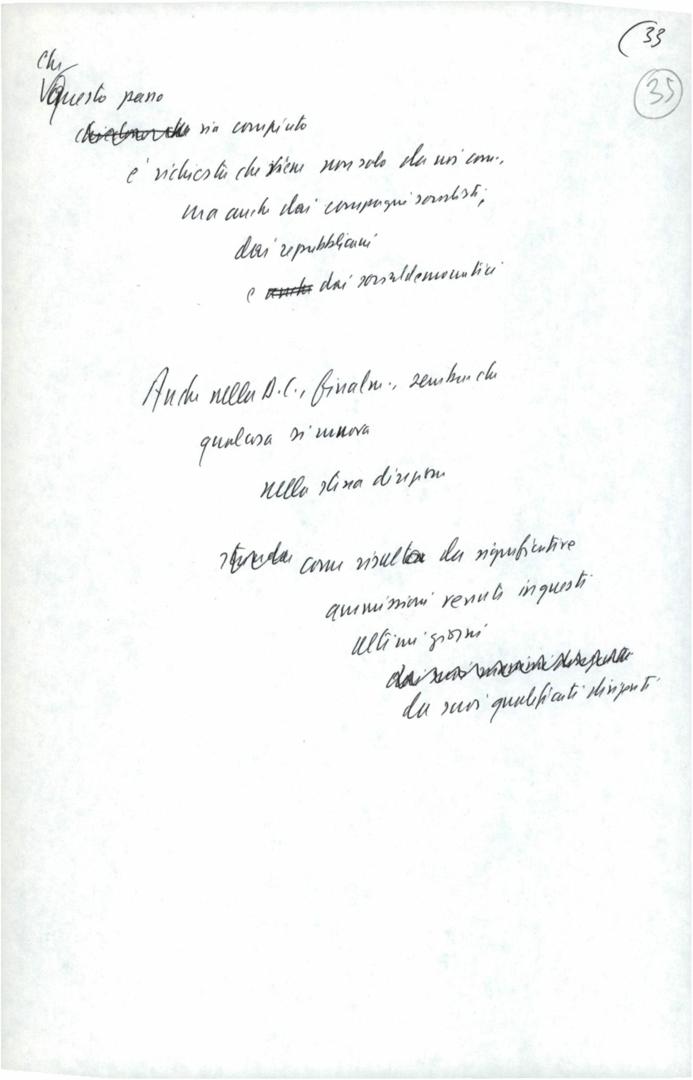 (33
35
Che
Questo passo
sia compiuto
è richiesta che viene non solo da noi com.,
ma anche dai compagni socialisti,
dai repubblicani
e anche dai socialdemocratici
Anche nella D.C., finalm., sembra che
qualcosa si muova
nella stessa direzione
come risulta da significative
ammissioni venute in questi
ultimi giorni
da suoi qualificati dirigenti